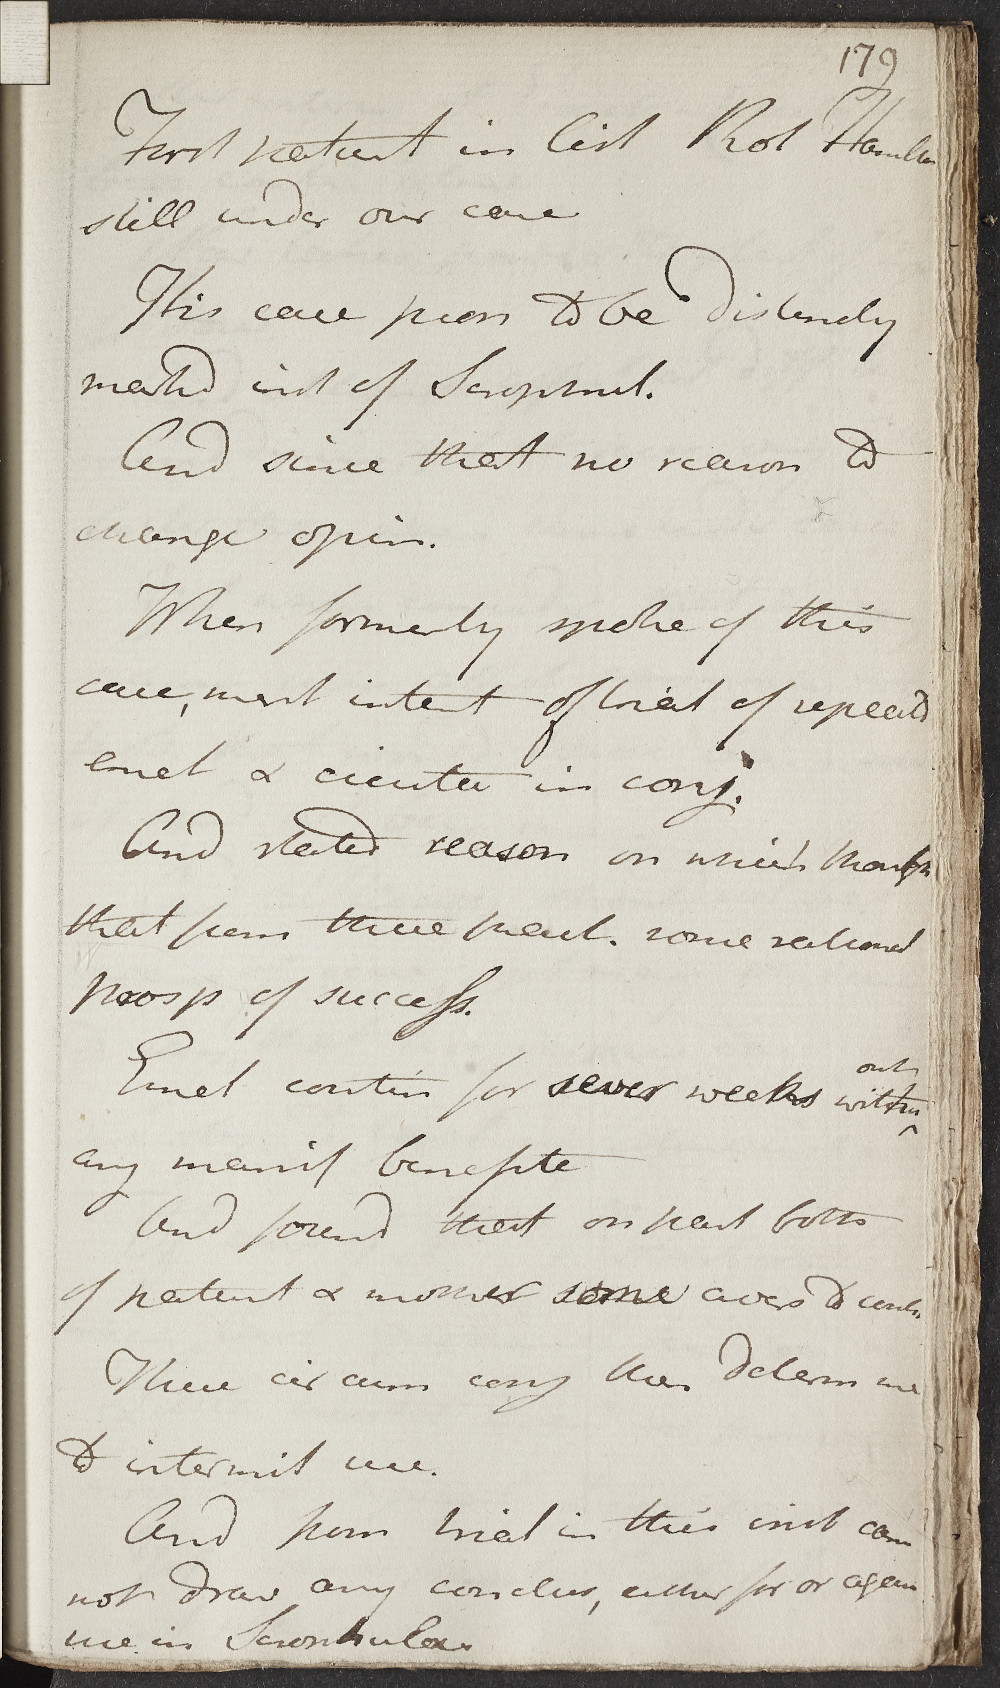 179
First patient in list Rob Hamilton
still under our care
This case from to be distinctly
mark'd inst of Scrophul.
And since that no reason to
change opin.
When formerly spoke of this
case, ment intent of trial of repeatd
emet & cicuta in conj.
And stated reason on which though
that from these pract. some rational
prosp of success.
Emet contin for sever weeks without
any manif benefite
And found that on part both
of patient & mother some avers to contin
These circum conj then determ me
to intermit use.
And from trial in this inst can
not draw any conclus, either for or again
use in Scrophula